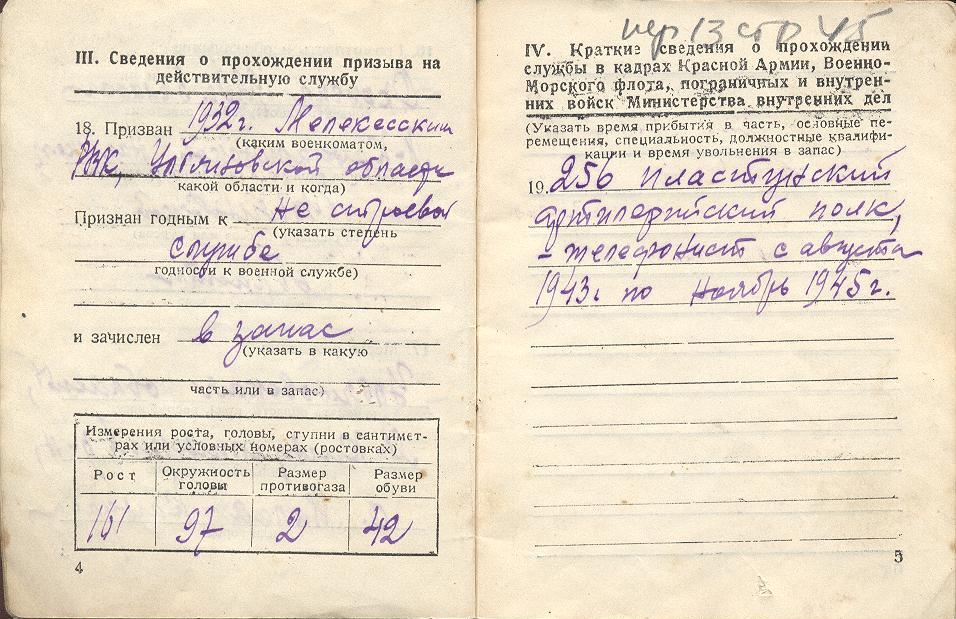 III. Сведения о прохождении призыва на
действительную службу
18. Призван 1932г. Мелекесским
(каким военкоматом,
РВК, Ульяновской области
какой области и когда)
Признан годным к не строевой
(указать степень
службе
годности к военной службе)
и зачислен в запас
(указать в какую
часть или в запас)
Измерения роста, головы, ступни в сантимет-
рах или условных номерах (ростовках)
Рост Окружность головы Размер противогаза Размер обуви
161 97 2 42
4
пер 13 стр 45
IV. Краткие сведения о прохождении
службы в кадрах Красной Армии, Военно-
Морского флота, пограничных и внутрен-
них войск Министерства внутренних дел
(Указать время прибытия в часть, основные пе-
ремещения, специальность, должностные квалифи-
кации и время увольнения в запас)
19. 256 пластунский
артилерийский полк,
– телефонист, с августа
1943г по ноябрь 1945г.
5